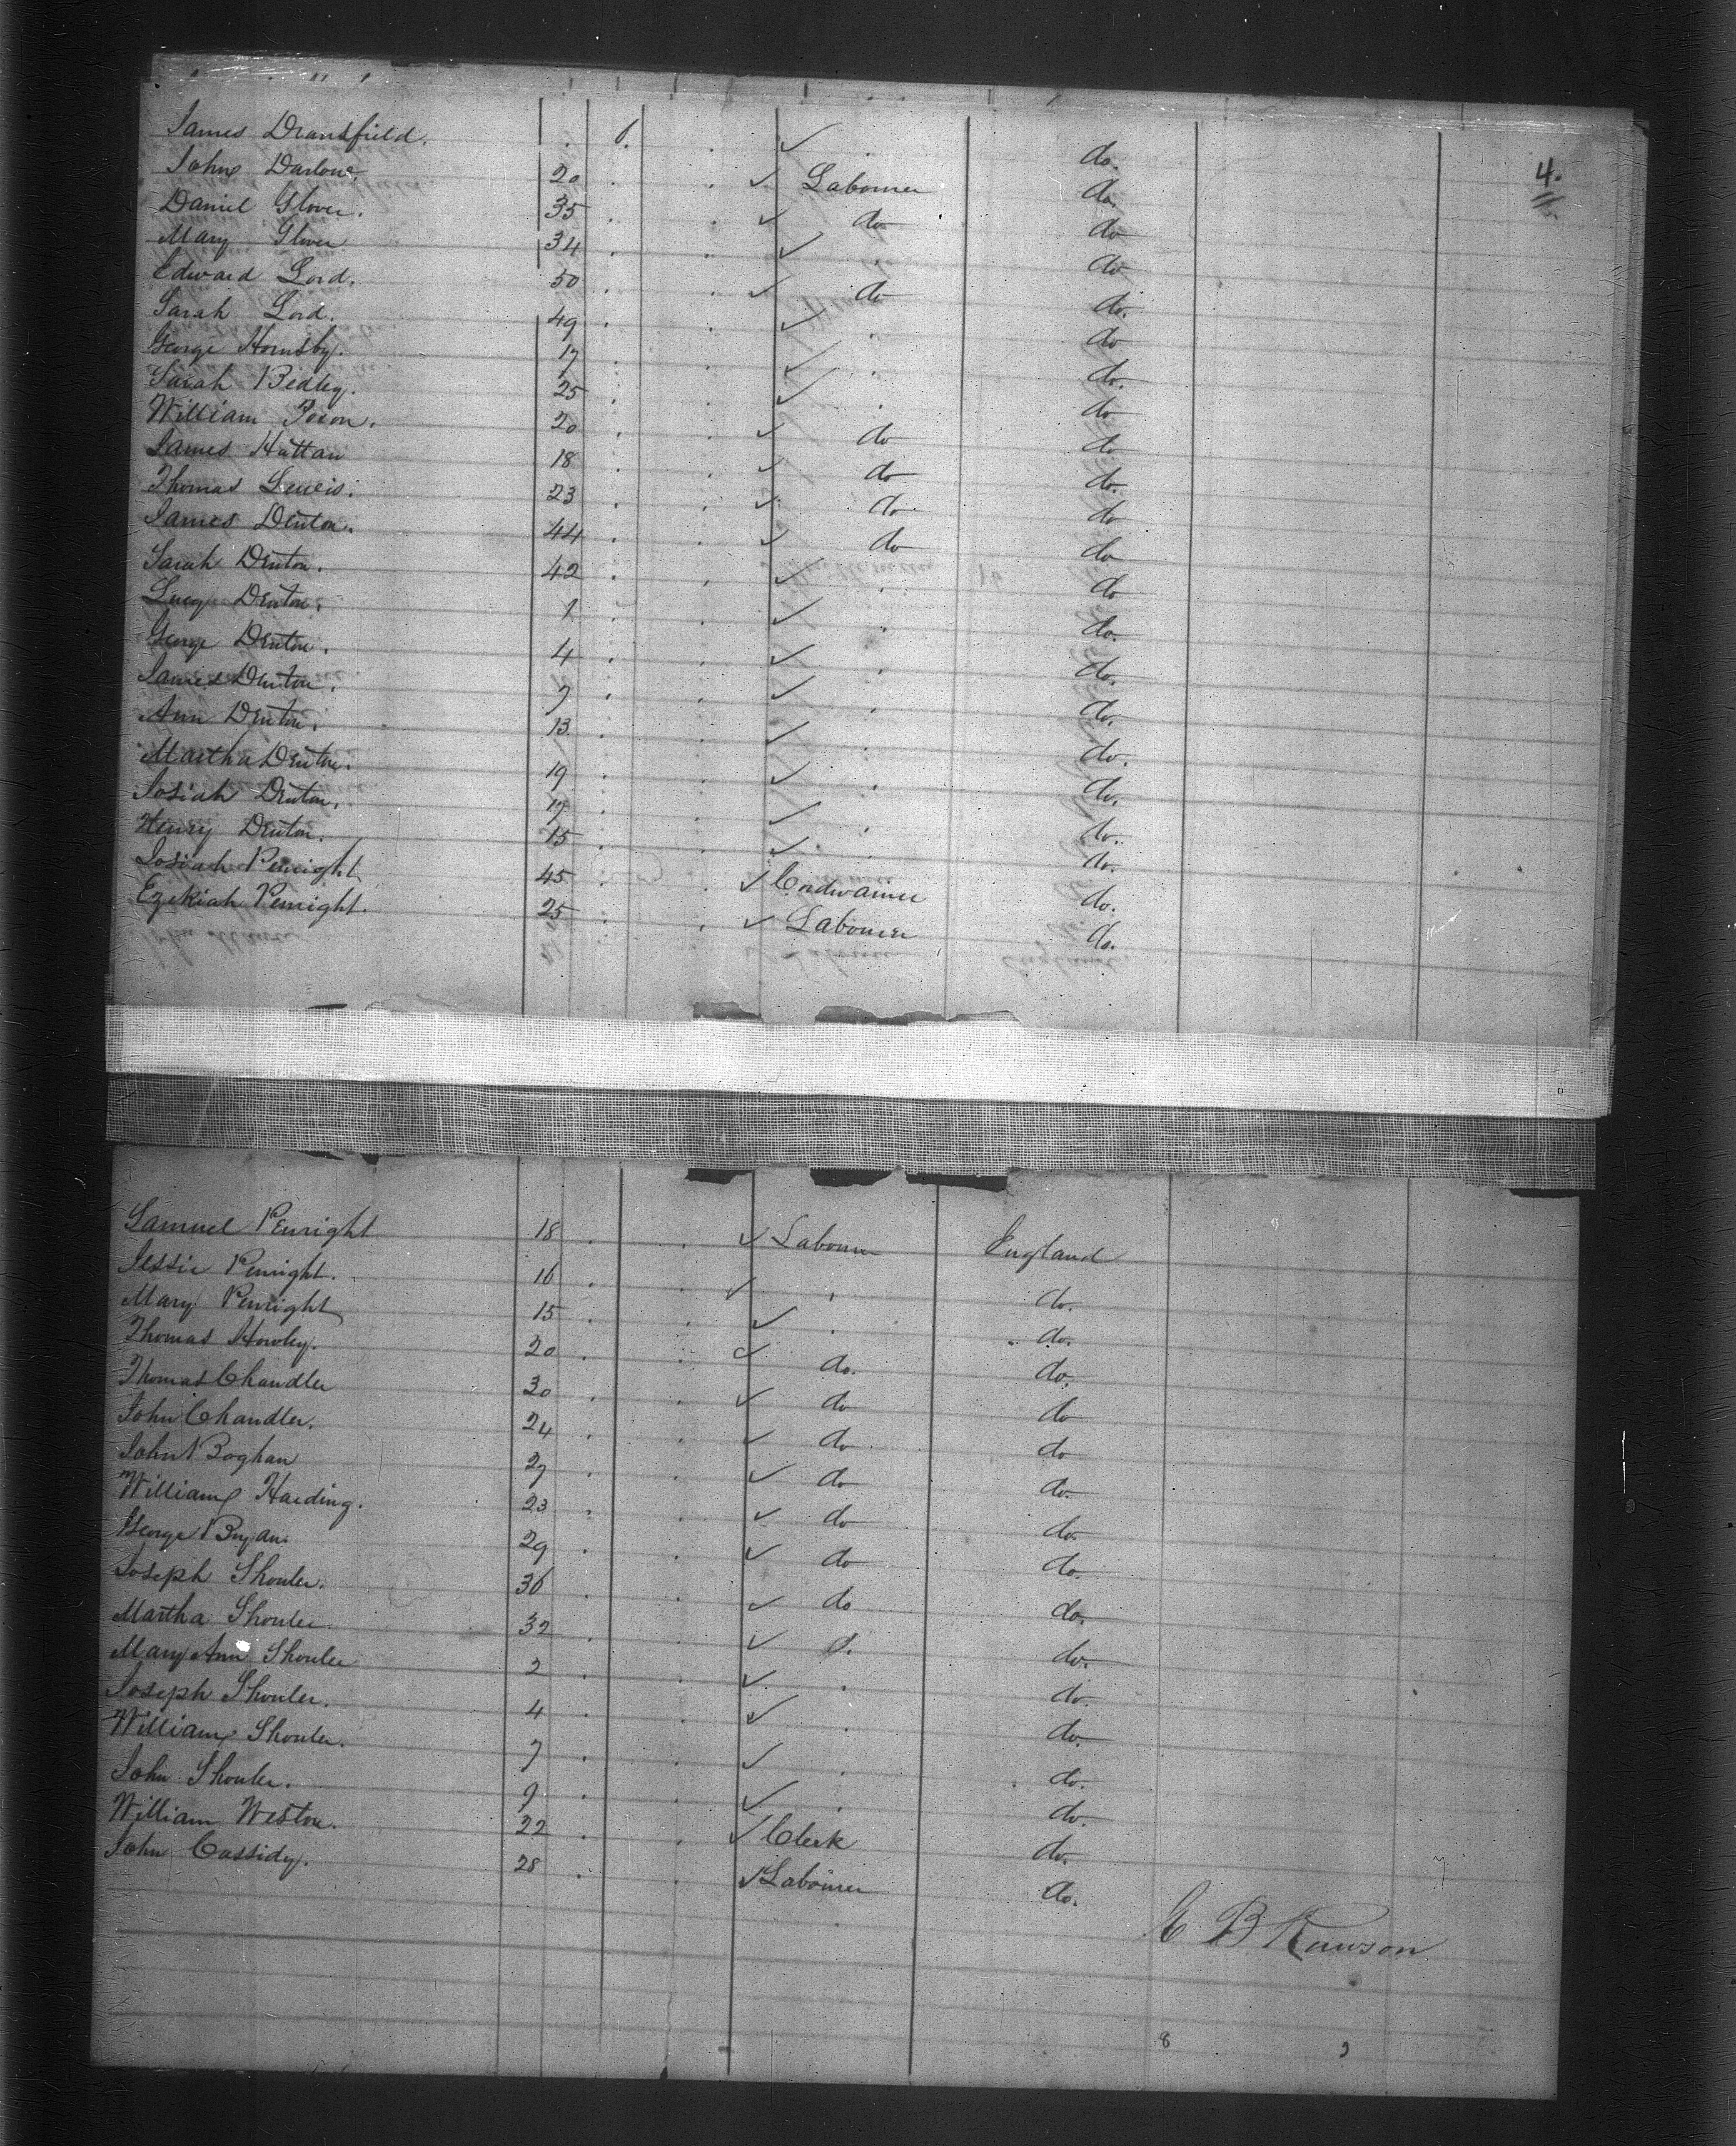 4.
James Dransfield. . 6. . ✓ . do.
John Darlow. 20 . . ✓ Labourer do.
Daniel Glover. 35 . . ✓ do do
Mary Glover 34 . . ✓ . do
Edward Lord. 50 . . ✓ do do.
Sarah Lord. 49 . . ✓ . do
George Hornsby. 17 . . ✓ . do.
Sarah Bedley. 25 . . ✓ . do
William 20 . . ✓ do do
James Hattan 18 . . ✓ do do.
Thomas Lewis. 23 . . ✓ do do
James Denton. 44 . . ✓ do do
Sarah Denton. 42 . . ✓ . do
Lucy Denton. 1 . . ✓ . do.
George Denton. 4 . . ✓ . do.
James Denton. 7 . . ✓ . do.
Ann Denton. 13 . . ✓ . do.
Martha Denton. 19 . . ✓ . do.
Josiah Denton. 17 . . ✓ . do.
Henry Denton. 15 . . ✓ . do.
Josiah Penright 45 . . ✓ Cordwainer do.
Ezekiah Penright. 25 . . ✓ Labourer do.
Samuel Penright 18 . . ✓ Labourer England
Jessie Penright. 16 . . ✓ . do.
Mary Penright 15 . . ✓ . do.
Thomas Howley. 20 . . ✓ do. do.
Thomas Chandler 30 . . ✓ do do
John Chandler. 24 . . ✓ do do
John Boghan 27 . . ✓ do do.
William Harding. 23 . . ✓ do do.
George Bryan. 29 . . ✓ do do.
Joseph Shouler. 36 . . ✓ do do.
Martha Shouler 32 . . ✓ . do.
Mary Ann Shouler 2 . . ✓ . do.
Joseph Shouler. 4 . . ✓ . do.
William Shouler. 7 . . ✓ . do.
John Shouler. 9 . . ✓ . do.
William Weston. 22 . . ✓ Clerk do.
John Cassidy. 28 . . ✓ Labourer do.
B Rawson
8